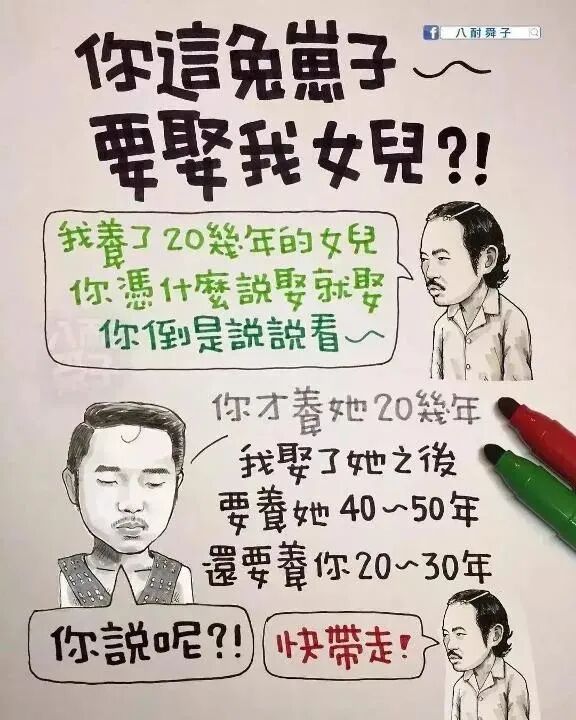 八耐舜子
你這兔崽子～
要娶我女兒?!
我養了20幾年的女兒
你憑什麼說娶就娶
你倒是說說看～
你才養她20幾年
我娶了她之後
要養她40~50年
還要養你20~30年
你說呢?!
快帶走!